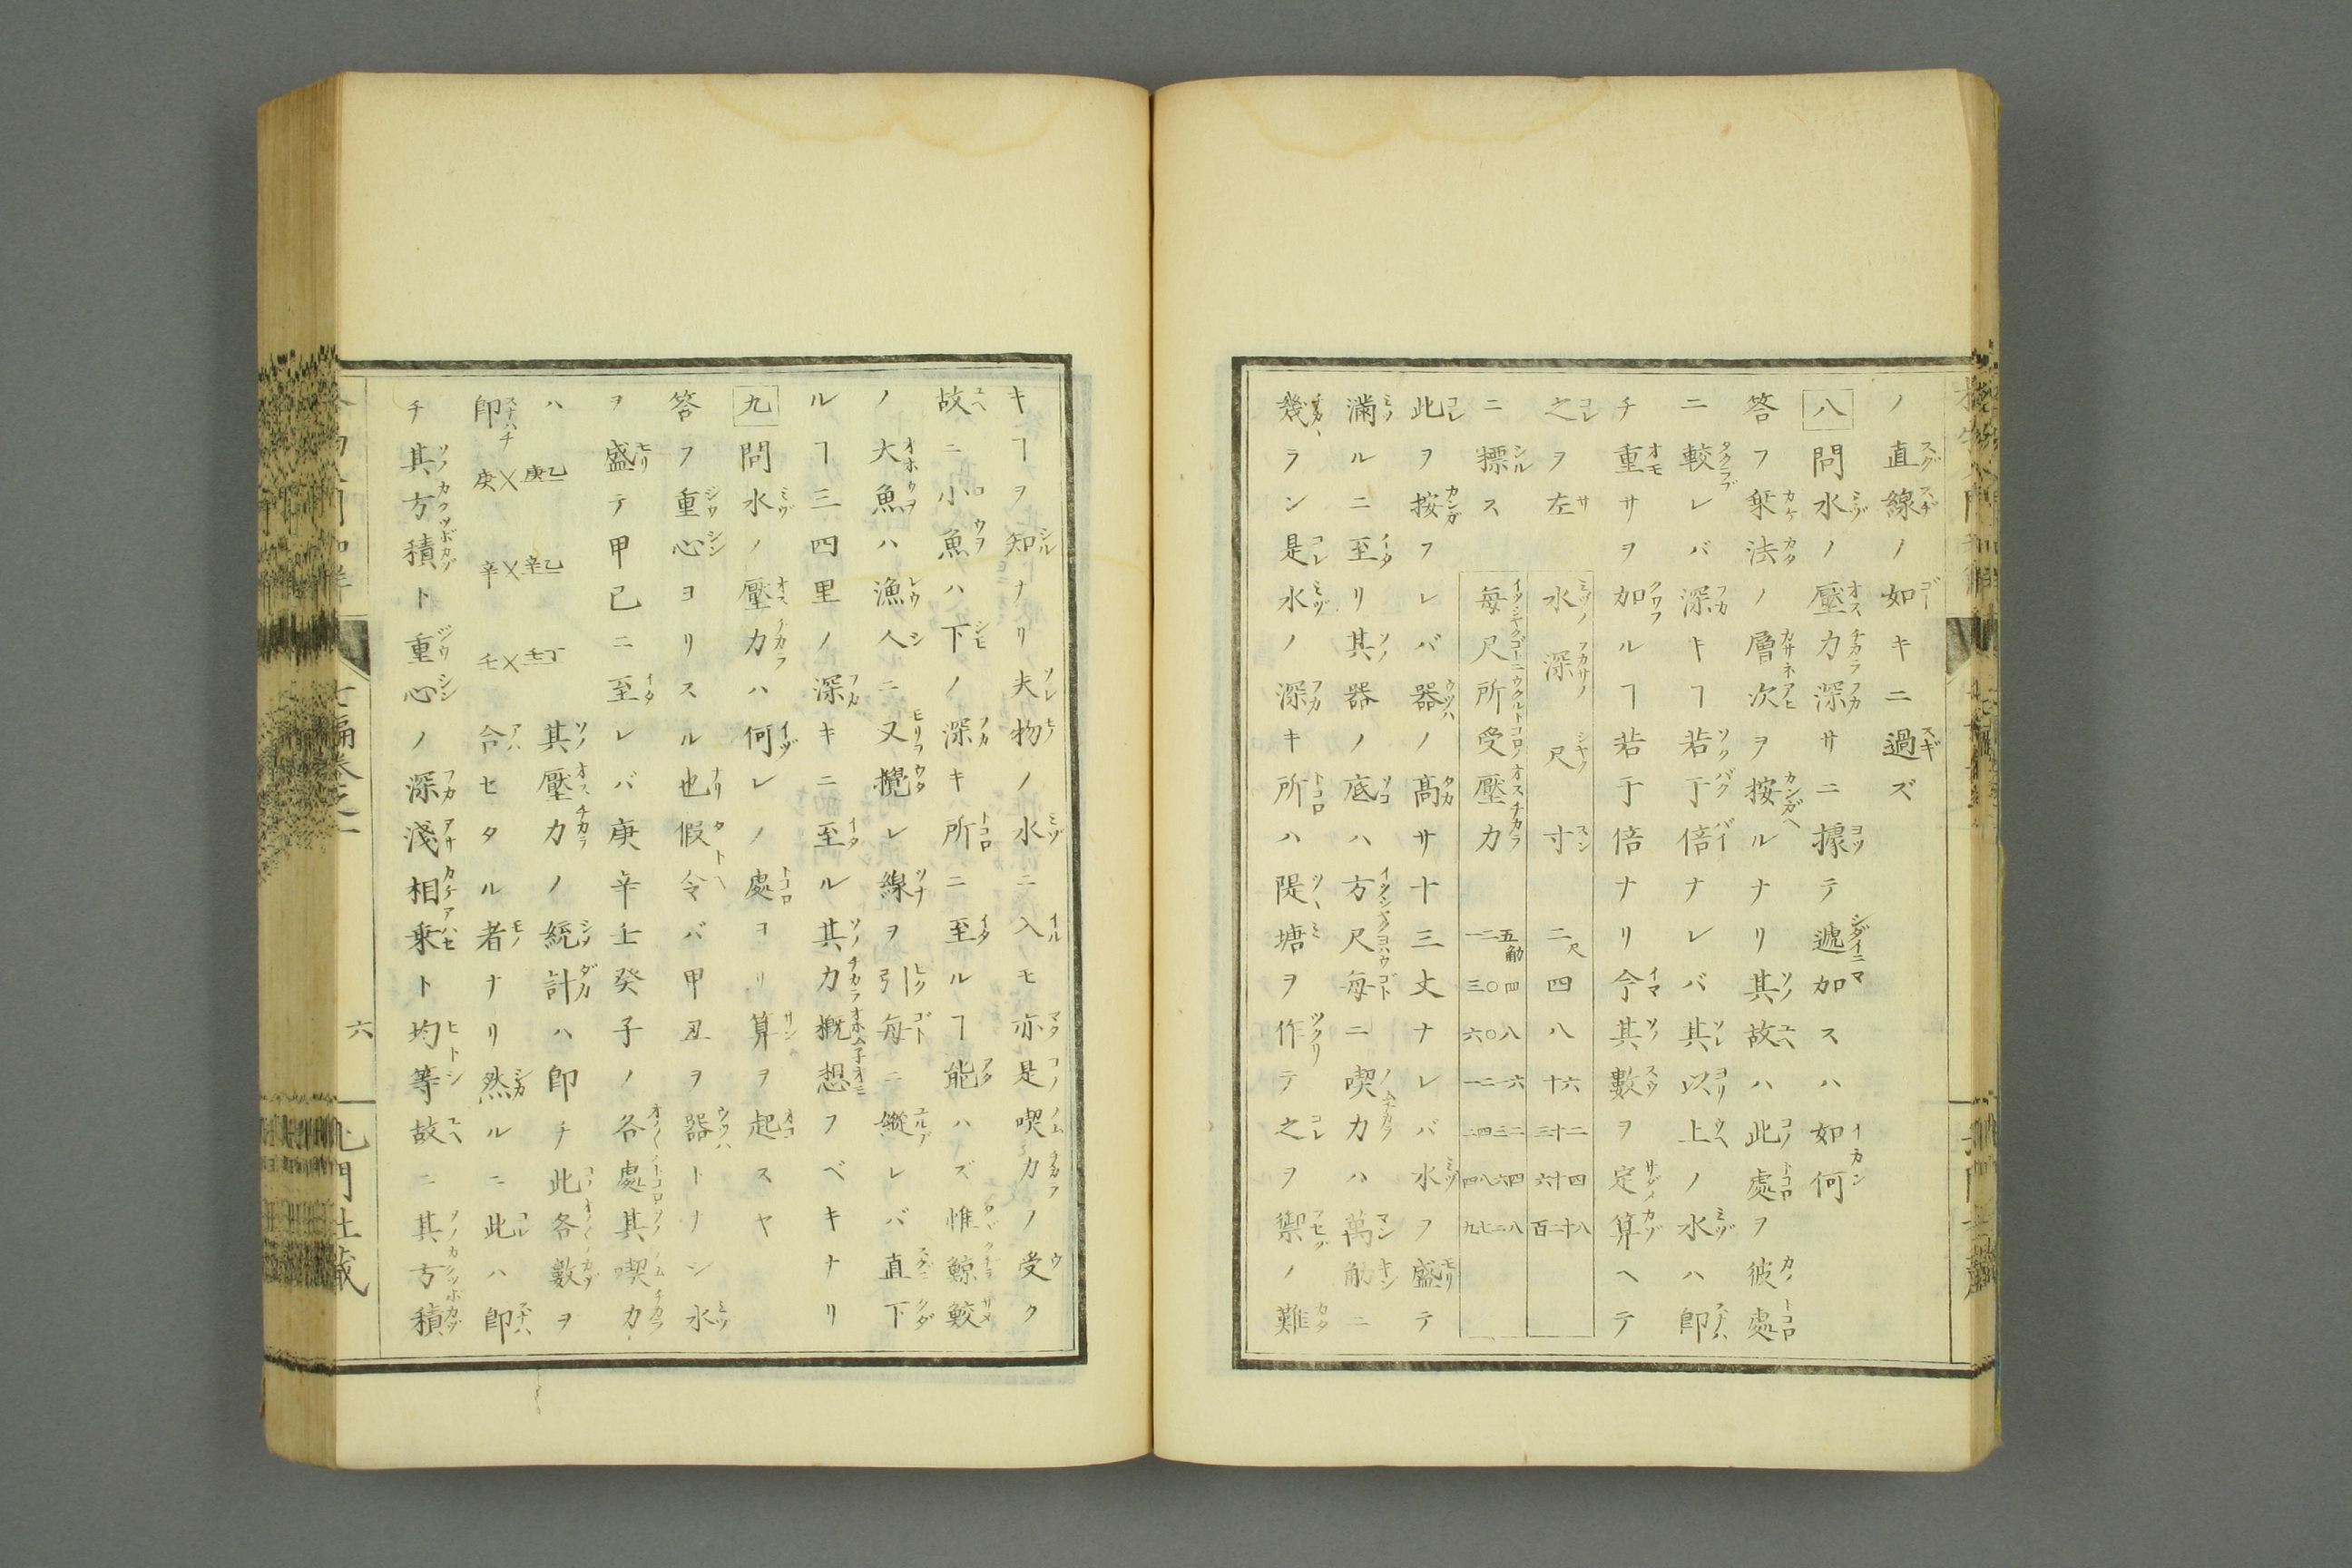 ノ直線ノ如キニ過ズ
八 問水ノ壓力深サニ據テ遞加スハ如何
答フ乗法ノ層次ヲ按ルナリ其故ハ此處ヲ彼處
ニ較レバ深キヿ若干倍ナレバ其以上ノ水ハ卽
チ重サヲ加ルヿ若干倍ナリ今其數ヲ定算ヘテ
之ヲ左
水深 尺 寸 二尺 四 八 十六 三十二 六十四 百二十八
ニ標ス
每尺所受壓力 一二五觔 三〇四 六〇八 一二一六 二四三二 四八六四 九七二八
此ヲ按フレバ器ノ髙サ十三丈ナレバ水ヲ盛テ
滿ルニ至リ其器ノ底ハ方尺每ニ喫力ハ萬觔ニ
幾ラン是水ノ深キ所ハ隄塘ヲ作テ之ヲ禦ノ難
キヿヲ知ナリ夫物ノ水ニ入ノモ亦是喫力ノ受ク
故ニ小魚ハ下ノ深キ所ニ至ルヿ能ハズ惟鯨鮫
ノ大魚ハ漁人ニ又攪レ線ヲ引每ニ縱レバ直下
ルヿ三四里ノ深キニ至ル其力概想フベキナリ
九 問水ノ壓力ハ何レノ處ヨリ算ヲ起スヤ
答フ重心ヨリスル也假令バ甲丑ヲ器トナシ水
ヲ盛テ甲己ニ至レバ庚辛壬癸子ノ各處其喫力
ハ 庚乙 辛乙 壬丁 其壓力ノ統計ハ卽チ此各數ヲ
卽 庚X 辛X 壬X 合セタル者ナリ然ルニ此ハ卽
チ其方積ト重心ノ深淺相乗ト均等故ニ其方積
七編卷之二
六